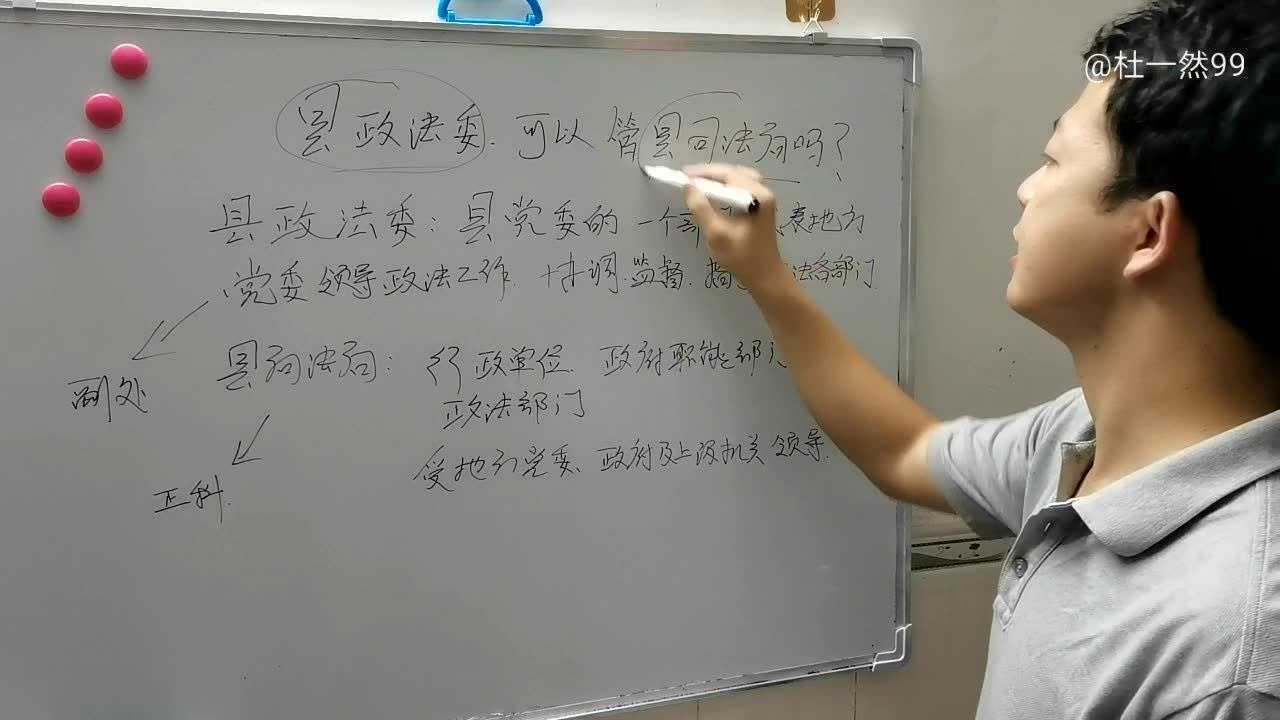 @杜一然99
县政法委.可以管县司法局吗?
县政法委:县党委的一个 表地方
党委领导政法工作.协调.监督.指 法各部门
副处
县司法局:行政单位.政府职能部门
政法部门
正科.
受地方党委、政府及上级机关领导.